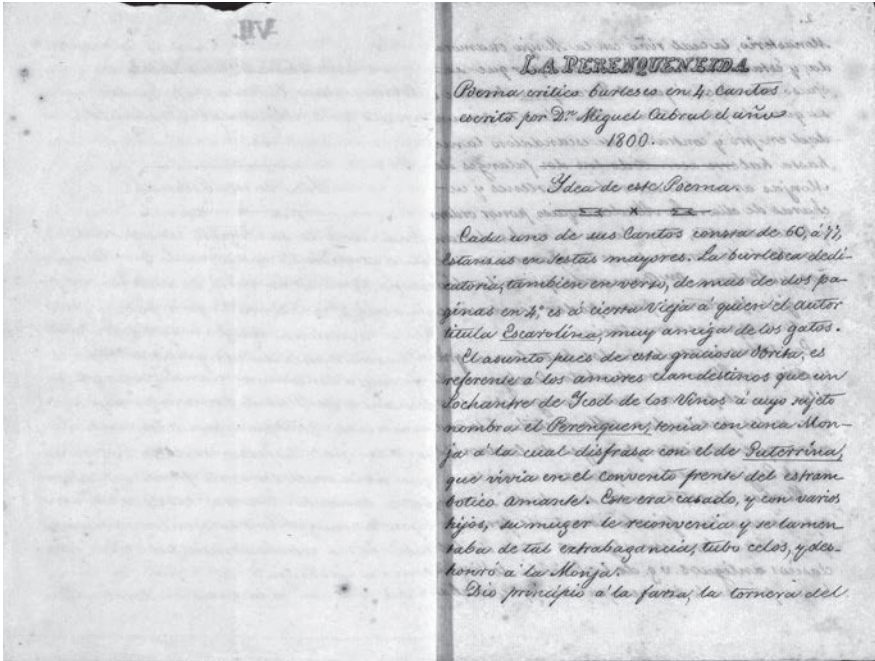 VII.
LA PERENQUENEIDA
Poema critico burlesco en 4. Cantos
escrito por D.n Miguel Cabral el año
1800.
Ydea de este Poema.
Cada uno de sus Cantos consta de 60, á 77,
Estansas en sestas mayores. La burlesca dedi-
catoria, tambien en verso, de mas de dos pa-
ginas en 4.º es á cierta Vieja á quien el autor
titula Escarolina, muy amiga de los gatos.
El asunto pues de esta graciosa sorita, es
referente á los amores clandestinos que un
Sochantre de Ycod de los Vinos á cuyo sujeto
nombra el Perenquen, tenia con una Mon-
ja á la cual disfrasa con el de Guterrina,
que vivia en el convento frente del estram
botico amante. Este era casado, y con varios
hijos, su muger le reconvenia y se lamen
taba de tal extrabagancia, tubo celos, y des-
honró á la Monja.
Dio principio á la farsa, la tornera del